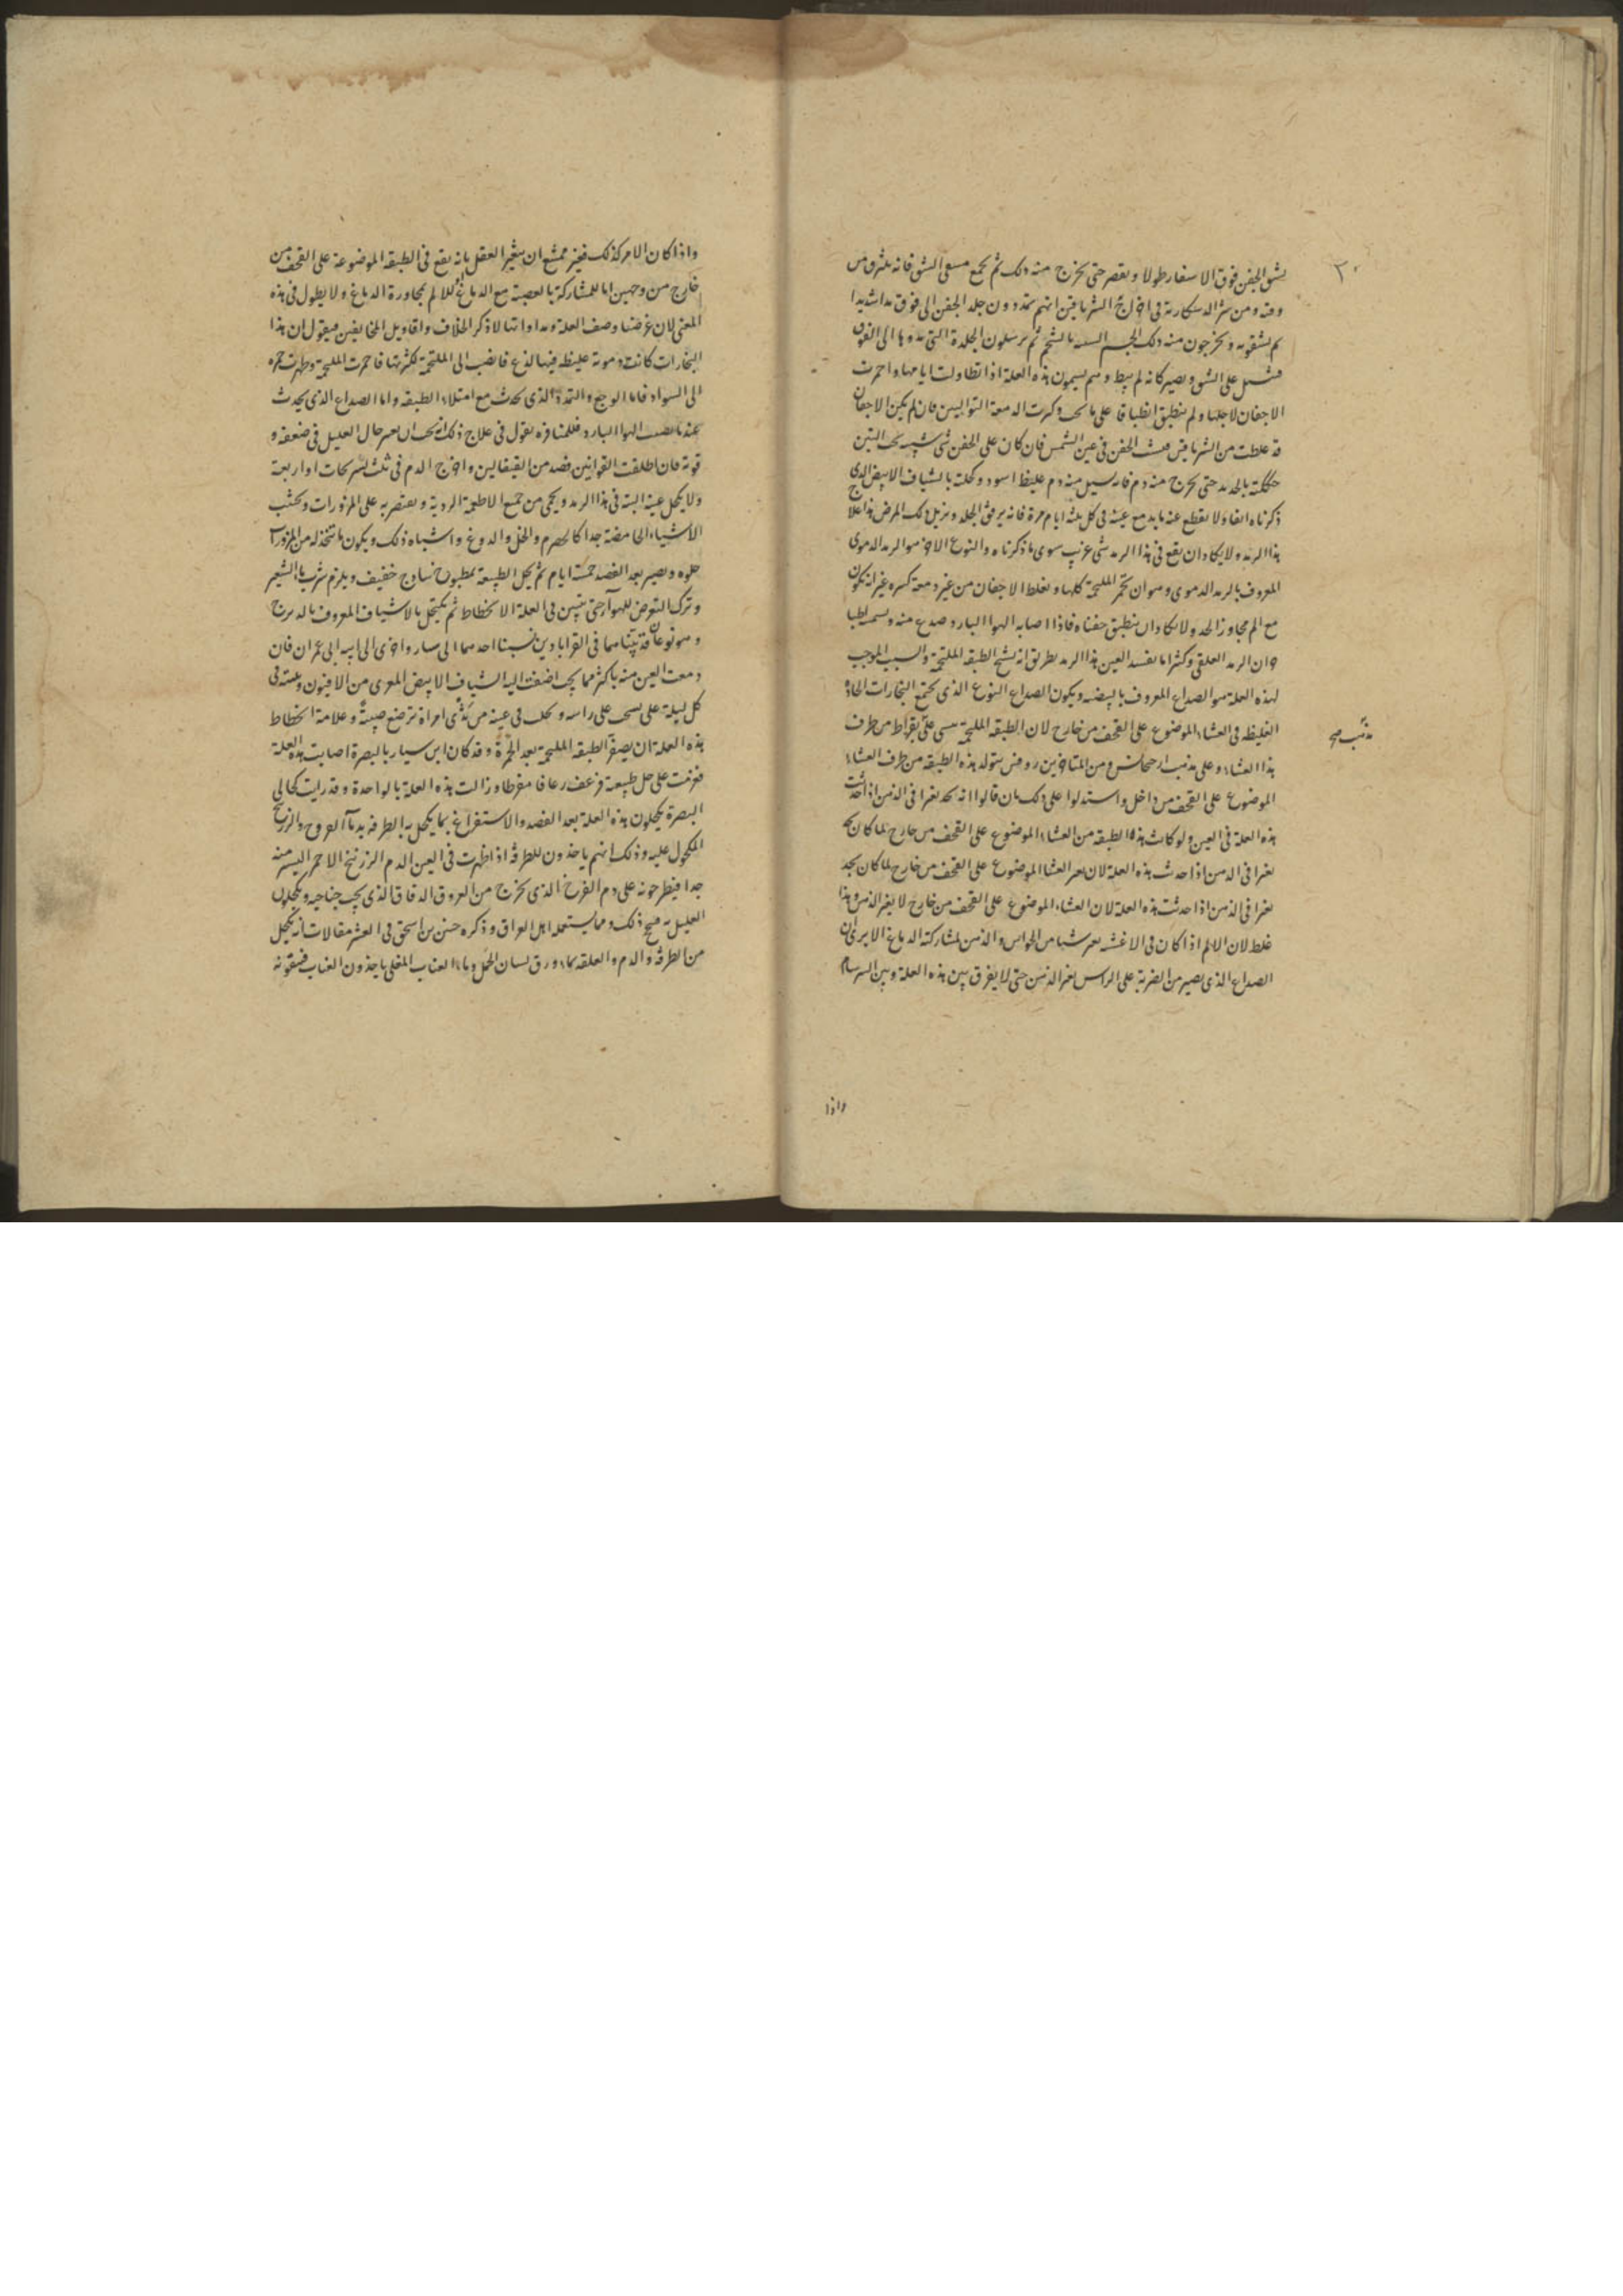 ٣٠
يشق الجفن فوق الاسفار طولا ويعصر حتى يخرج منه ذلك ثم يجمع الشق فانه يلتزق من
وقته ومن في اخراج الشرناقين انهم يمددون جلد الجفن الى فوق مدا شديدا
ثم يشقونه ويخرجون منه ذلك الجسم بالشحم ثم يرسلون الجلدة التي مدوها الى الفوق
على الشق ويصير كانه لم يبط وهم يسمون هذه العلة اذا تطاولت ايامها واحمرت
الاجفان لاجلها ولم ينطبق انطباقا على ما يجب وكثرت الدمعة فان لم يكن الاجفان
قد غلظت من الشرناقين الجفن في عين الشمس فان كان على الجفن شي شبيه بحب التين
حككته بالحديد حتى يخرج منه دم فان سيل منه دم غليظ اسود وكحلته بالشياف الابيض الذي
ذكرناه انفا ولا يقطع عنه ما يدمع عينه في كل ثلثة ايام مرة فانه يرقق الجلد ويزيل ذلك المرض هذا علاج
هذا الرمد ولا يكاد ان يقع في هذا الرمد شي غريب سوى ما ذكرناه والنوع الاخر هو الرمد الدموى
المعروف بالرمد الدموى وهو ان يحمر الملتحمة كلها ويغلظ الاجفان من غير دمعة كثيره غير انه يكون
مع الم مجاوز الحد ولا يكاد ان ينطبق جفناه فاذا اصابه الهوا البارد صدع منه
وان الرمد العلقى وكثيرا ما يفسد العين هذا الرمد بطريق انه يشنج الطبقة الملتحمة والسبب الموجب
لهذه العلة هو الصداع المعروف بالبيضه ويكون الصداع النوع الذى يجتمع البخارات الحادة
الغليظه في الغشاء الموضوع على القحف من خارج لان الطبقه الملتحمة على بقراط من طرف
مذهب صح
هذا الغشاء وعلى مذهب ومن المتاخرين روفس يتولد هذه الطبقه من طرف الغشاء
الموضوع على القحف من داخل واستدلوا على ذلك بان قالوا انه يجد تغيرا في الذهن اذا حدثت
هذه العلة في العين ولو كانت هذه الطبقه من الغشاء الموضوع على القحف من خارج لما كان يجد
تغيرا في الذهن اذا حدثت هذه العلة لان الغشا الموضوع على القحف من خارج لما كان يجد
تغيرا في الذهن اذا حدثت هذه العلة لان الغشاء الموضوع على القحف من خارج لا يغير الذهن وهذا
غلط لان الالم اذا كان في الاغشيه شيا من الحواس والذهن لمشاركته الدماغ الا يرى ان
الصداع الذى يصير من الضربة على الراس يغير الذهن حتى لا يفرق بين هذه العلة وبين السرسام
واذا
واذا كان الامر كذلك فغير ممتنع ان يتغير العقل بانه يقع في الطبقة الموضوعة على القحف من
خارج من وجهين اما للمشاركة بالعصبة مع الدماغ للالم بمجاورة الدماغ ولا يطول في هذه
المعنى لان غرضنا وصف العلة ومداواتها لا ذكر الخلاف واقاويل المخالفين فيقول ان هذا
البخارات كانت دموية غليظه فيها لذع فانصب الى الملتحمة لكثرتها فاحمرت الملتحمة وظهرت حمرة
الى السواد فاما الوجع والتمدد الذى يحدث مع امتلاء الطبقه واما الصداع الذى يحدث
عندما يصيب الهوا البارد نقول في علاج ذلك انه يجب ان حال العليل في ضعفه و
قوته فان اطلقت القوانين فصد من القيفالين واخرج الدم في ثلث تسريحات او اربعة
ولا يكحل عينه البتة في هذا الرمد ويحمى من جميع الاطعمة الردية ويقتصر به على المزورات ويجتنب
الاشياء الحامضة جدا كالحصرم والخل والدوغ واشباه ذلك ويكون ما يتخذ له من المزورات
حلوه ويصير بعد الفصد خمسة ايام ثم يحل الطبيعة بمطبوخ ساذج خفيف ويلزم شرب ماء الشعير
وترك التعرض للهوآ حتى يتبين في العلة الانحطاط ثم يكتحل بالاشياف المعروف
وهو نوعان قد بيناهما في القراباذين نسبنا احدهما الى واخرى الى ابيه ابى عمران فان
دمعت العين منه باكثر مما يجب اضفت اليه الشياف الابيض المعرى من الافيون في
كل ليلة على راسه ويحلب في عينه من ثدى امراة ترضع صبية وعلامة انحطاط
هذه العلة ان يصفر الطبقه الملتحمة بعد الحمرة وقد كان ابن سيار بالبصرة اصابت هذه العلة
فعزمت على حل طبيعته فرعف رعافا مفرطا وزالت هذه العلة بالواحدة وقد رايت كحالى
البصرة يكحلون هذه العلة بعد الفصد والاستفراغ بما يكحل به الطرفه والزرنيخ
المكحول عليه وذلك انهم ياخذون للطرفة اذا ظهرت في العين الدم الزرنيخ الاحمر اليسير منه
جدا فيطرحونه على دم الفرخ الذى يخرج من العروق الدقاق الذى يجب جناحيه ويكحلون
العليل به فيصح ذلك ومما يستعمله اهل العراق وذكره حنين بن اسحق في العشر مقالات انه يكحل
من الطرفة والدم والعلقه بماء ورق لسان الحمل وماء العناب المغلى ياخذون العناب فينقونه